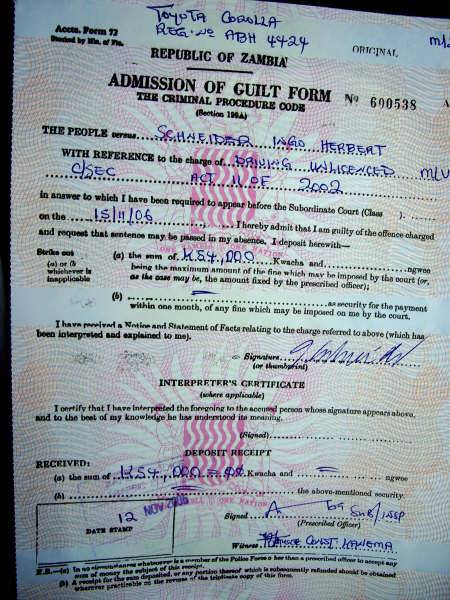 Accts. Form 72
Stocked by Min. of Fin.
TOYOTA COROLLA
REG. No ABH 4424
ORIGINAL
REPUBLIC OF ZAMBIA
ADMISSION OF GUILT FORM
THE CRIMINAL PROCEDURE CODE
(Section 199A)
No 600538
THE PEOPLE versus SCHNEIDER INGO HERBERT
WITH REFERENCE to the charge of DRIVING UNLICENCED M/V
C/SEC ACT 11 OF 2002
in answer to which I have been required to appear before the Subordinate Court (Class ).
on the 15/11/06, I hereby admit that I am guilty of the offence charged
and request that sentence may be passed in my absence. I deposit herewith—
Strike out
(a) or (b)
whichever is
inapplicable
(a) the sum of K54,000 Kwacha and ngwee
being the maximum amount of the fine which may be imposed by the court (or,
as the case may be, the amount fixed by the prescribed officer);
(b) as security for the payment
within one month, of any fine which may be imposed on me by the court.
I have received a Notice and Statement of Facts relating to the charge referred to above (which has
been interpreted and explained to me).
Signature
(or thumbprint)
INTERPRETER'S CERTIFICATE
(where applicable)
I certify that I have interpreted the foregoing to the accused person whose signature appears above,
and to the best of my knowledge he has understood its meaning.
(Signed)
DEPOSIT RECEIPT
RECEIVED:
(a) the sum of K54,000 = Kwacha and = ngwee
(b) the above-mentioned security.
12 NOV 2006
DATE STAMP
Signed
(Prescribed Officer)
Witness Const KANEMA
N.B.—(a) In no circumstances whatsoever is a member of the Police Force other than the prescribed officer to accept any
sum of money the subject of this receipt.
(b) A receipt for the sum deposited, or any portion thereof which is subsequently refunded should be obtained
wherever practicable on the reverse of the triplicate copy of this form.